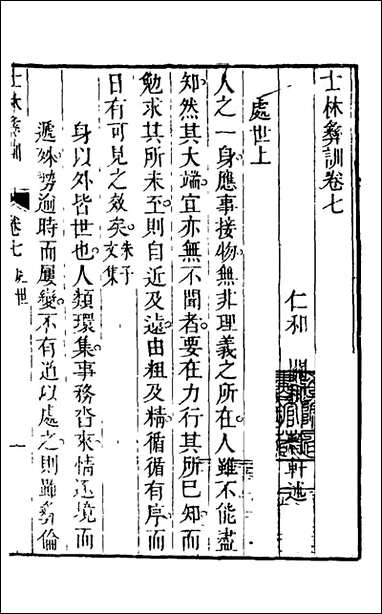 士林彝訓卷七
仁和 關 軒述
處世上
人之一身應事接物無非理義之所在人雖不能盡
知然其大端宜亦無不聞者要在力行其所已知而
勉求其所未至則自近及遠由粗及精循循有序而
日有可見之效矣朱子文集
身以外皆世也人類環集事務沓來情迭境而
遞殊勢逾時而屢變不有道以處之則雖彞倫
士林彝訓 卷七 處世 一